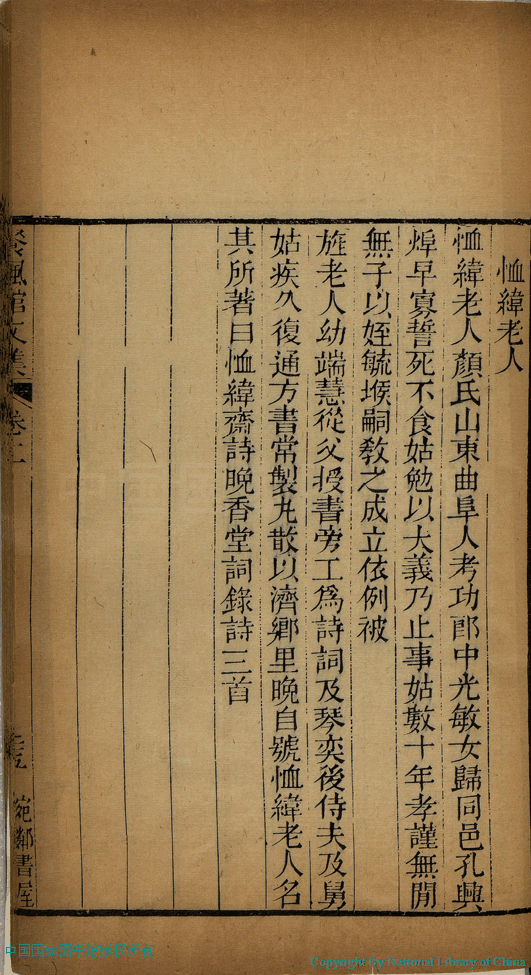 恤緯老人
恤緯老人顏氏山東曲阜人考功郎中光敏女歸同邑孔興
焯早寡誓死不食姑勉以大義乃止事姑數十年孝謹無閒
無子以姪毓堠嗣教之成立依例被
旌老人幼端慧從父授書旁工爲詩詞及琴奕後侍夫及舅
姑疾久復通方書常製丸散以濟鄉里晚自號恤緯老人名
其所著曰恤緯齋詩晚香堂詞錄詩三首
餐楓館文集
卷二
宛鄰書屋
中国国家图书馆版权所有
Copyright By National Library of China